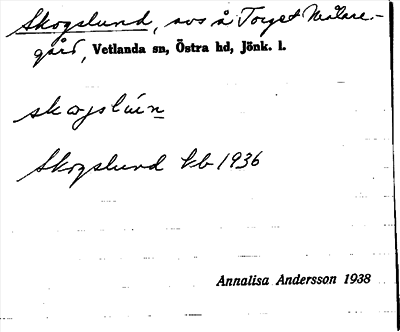 Skogslund, avs å Torget Målare-
gård, Vetlanda sn, Östra hd, Jönk. l.
skogslún
Skogslund kb 1936
Annalisa Andersson 1938